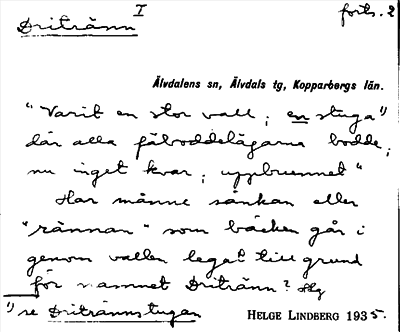 Dritränn I forts. 2
Älvdalens sn, Älvdals tg, Kopparbergs län.
"Varit en stor vall; en stuga¹⁾
där alla fäboddelägarna bodde;
nu inget kvar; uppbrunnet"
Har månne sänkan eller
"rännan" som bäcken går i
genom vallen legat till grund
för namnet Dritränn? Hlg
¹⁾ se Dritrännstugan HELGE LINDBERG 1935.